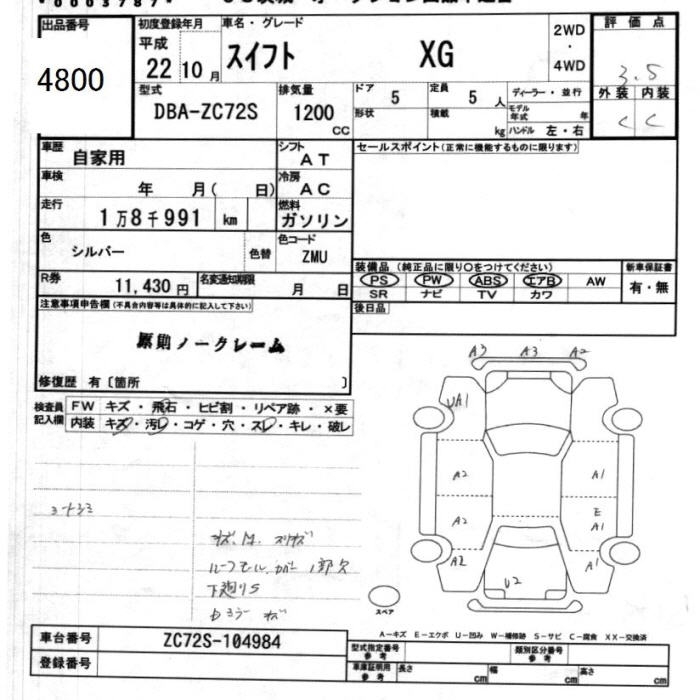 出品番号
4800
初度登録年月
平成
22 10 月
車名・グレード
スイフト XG
2WD
・
4WD
評価点
3.5
外装 内装
C C
型式
DBA-ZC72S
排気量
1200
CC
ドア
5
定員
5 人
形状
積載
kg
ディーラー・並行
モデル年式 年
ハンドル 左・右
車歴
自家用
シフト
AT
車検
年 月( 日)
冷房
AC
走行
1万8千991 km
燃料
ガソリン
色
シルバー
色替
色コード
ZMU
R券
11,430 円
名変通知期限
月 日
セールスポイント(正常に機能するものに限ります)
装備品(純正品に限り○をつけてください)
PS PW ABS エアB AW
SR ナビ TV カワ
新車保証書
有・無
後日品
注意事項申告欄(不具合内容等は具体的に記入して下さい)
原則ノークレーム
修復歴 有〔箇所 〕
検査員記入欄
FW キズ・飛石・ヒビ割・リペア跡・×要
内装 キズ・汚レ・コゲ・穴・スレ・キレ・破レ
A3 A3 A2
UA1
A2 A1
A2 E A1
A2 A1
U2
スペア
キズ、
ルーフモール、カバー 1部欠
下廻りS
A-キズ E-エクボ U-凹み W-補修跡 S-サビ C-腐食 XX-交換済
車台番号
ZC72S-104984
登録番号
型式指定番号
参考
類別区分番号
参考
車庫証明用
参考
長さ cm 幅 cm 高さ cm